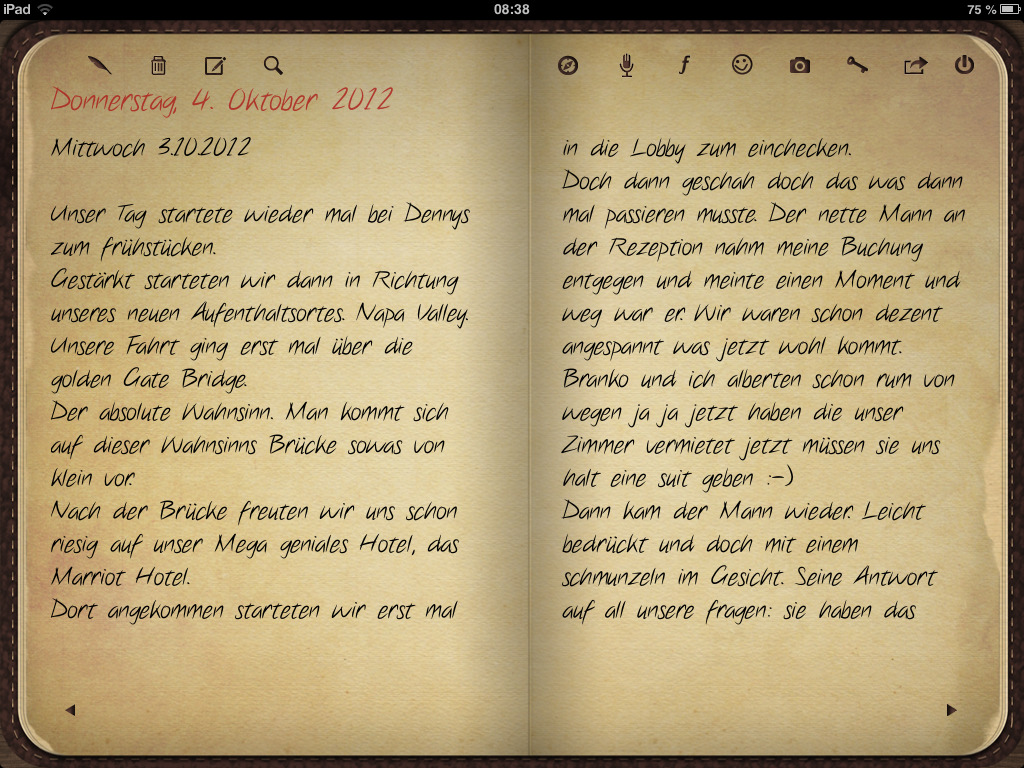 iPad 08:38 75 %
Donnerstag, 4. Oktober 2012
Mittwoch 3.10.2012
Unser Tag startete wieder mal bei Dennys
zum frühstücken.
Gestärkt starteten wir dann in Richtung
unseres neuen Aufenthaltsortes. Napa Valley.
Unsere Fahrt ging erst mal über die
golden Gate Bridge.
Der absolute Wahnsinn. Man kommt sich
auf dieser Wahnsinns Brücke sowas von
klein vor.
Nach der Brücke freuten wir uns schon
riesig auf unser Mega geniales Hotel, das
Marriot Hotel.
Dort angekommen starteten wir erst mal
in die Lobby zum einchecken.
Doch dann geschah doch das was dann
mal passieren musste. Der nette Mann an
der Rezeption nahm meine Buchung
entgegen und meinte einen Moment und
weg war er. Wir waren schon dezent
angespannt was jetzt wohl kommt.
Branko und ich alberten schon rum von
wegen ja ja jetzt haben die unser
Zimmer vermietet jetzt müssen sie uns
halt eine suit geben :-)
Dann kam der Mann wieder. Leicht
bedrückt und doch mit einem
schmunzeln im Gesicht. Seine Antwort
auf all unsere fragen: sie haben das